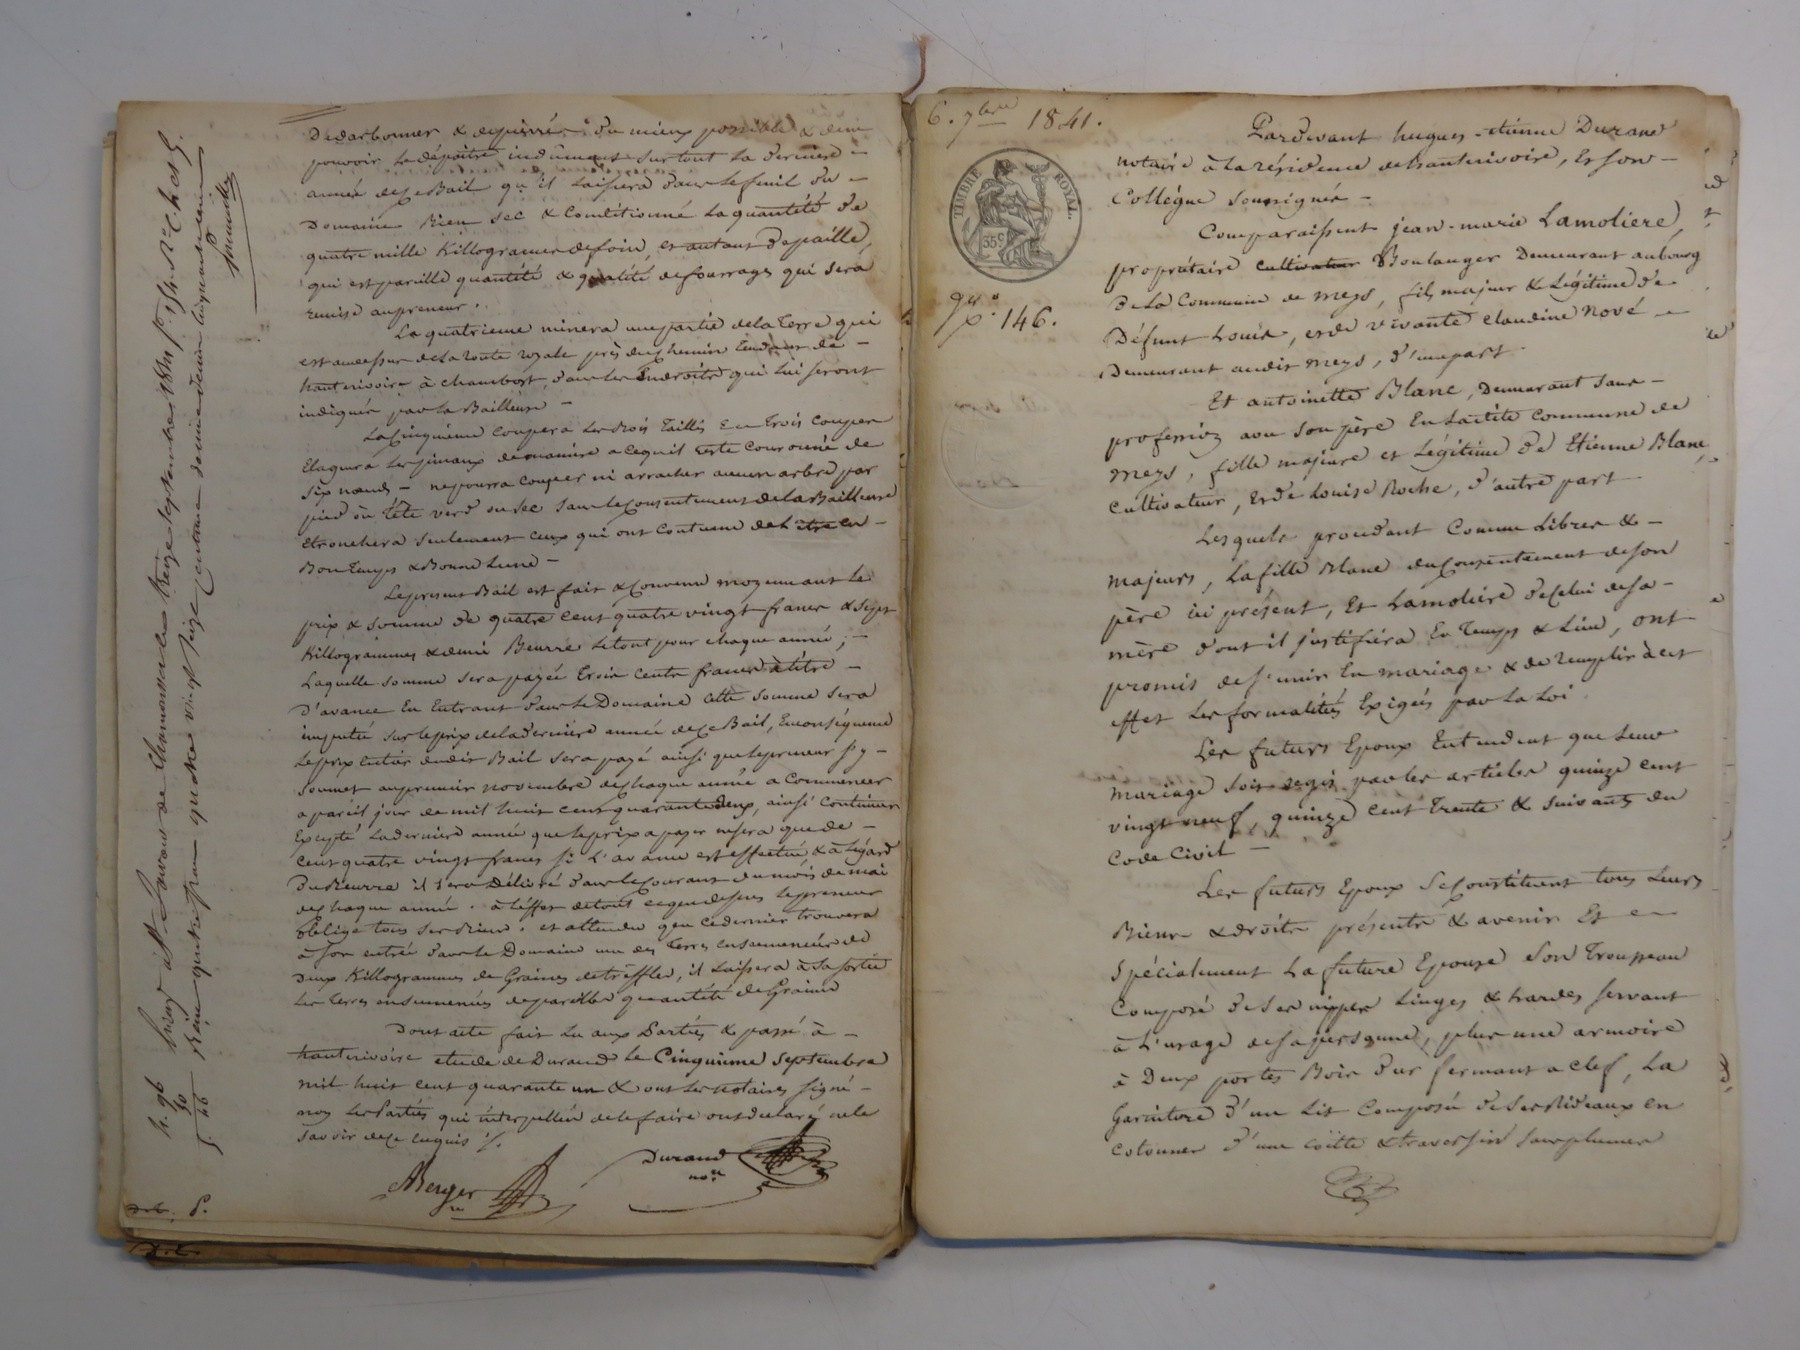 pouvoir le dépaitre indûment surtout la derniere
année de ce Bail qu'il laissera dans le fenil du
Domaine Bien sec & conditionné la quantité de
quatre mille Killogrames de foin, et autant de paille,
qui est pareille quantité & qualité de fourrages qui sera
remise au preneur.
La quatrieme minera une partie de la Terre qui
est au dessus de la route royale près du chemin tendant de
hauterivoire à chambost, dans les Endroits qui lui seront
indiqués par la Bailleuse
La Cinquieme coupera les Bois Taillis En trois coupes
Elaguera de manière a ce qu'il reste couronné de
six nœuds - ne pourra couper ni arracher aucun arbre par
pied où tête verd ou sec sans le consentement de la Bailleuse
etronchera seulement ceux qui ont coutume de l'être en
Bon Temps & Bonne Lune
Le présent Bail est fait & convenu moyennant le
prix & somme de quatre cent quatre vingt francs & sept
Killogrammes & demi Beurre le tout pour chaque année;
Laquelle somme sera payée trois cents francs à titre
d'avance En Entrant dans le Domaine cette somme sera
imputée sur le prix de la derniére année de ce Bail, Enconséquence
le prix entier dudit Bail sera payé ainsi que le preneur s'y
soumet au premier novembre de chaque année a commencer
a pareil jour de mil huit cent quarante deux, ainsi continuer
Excepté la derniere année que le prix a payer ne sera que de
cent quatre vingt francs si l'avance est effectuée & à l'égard
du Beurre il sera Délivré dans le courant du mois de mai
de chaque année. à l'effet de tout ce que dessus le preneur
oblige tous ses Biens. et attendu que ce dernier trouvera
à son entrée dans le Domaine une des Terres ensemencée de
deux Killogrammes de Graines de trèffles, il laissera à sa sortie
les terres ensemencées de pareille quantité de Graines
Dont acte fait lu aux Parties & passé à
hauterivoire etude de Durand le Cinquième Septembre
mil huit cent quarante un & ont les notaires signé
non les Parties qui interpellées de le faire ont déclaré ne le
savoir de ce enquis ./.
Berger
Durand
no.re
6. 7bre 1841.
TIMBRE ROYAL.
35 c
146.
Pardevant hugues-étienne Durand
notaire à la résidence de hauterivoire, Et son
Collégue soussignés
Comparaissent jean-marie Lamoliere,
propriétaire cultivateur Boulanger Demeurant au bourg
de La Commune de meys, fils majeur & Légitime de
Défunt Louis, et de vivante claudine Nové
Demeurant audit meys, d'une part
Et antoinette Blanc, Demeurant sans
profession avec son père En Ladite Commune de
meys, fille majeure et Légitime de Etienne Blanc,
cultivateur, Et de Louise Roche, d'autre part
Lesquels procedant Comme Libres &
majeurs, La fille Blanc du consentement de son
père ici présent, Et Lamoliére de celui de sa
mère dont il justifiéra En Temps & Lieu, ont
promis de s'unir En mariage & de remplir à cet
effet Les formalités Exigées par La Loi.
Les futurs Epoux Entendent que Leur
mariage soit regis par les articles quinze cent
vingt neuf, quinze cent Trente & suivants du
Code Civil
Les futurs Epoux se constituent tous Leurs
Biens & droits présents & avenir Et
spécialement La future Epouse son Trousseau
Composé de ses nippes Linges & hardes servant
à L'usage de sa personne, plus une armoire
à Deux portes Bois dur fermant a clef, La
Garniture d'un Lit Composée de ses Rideaux en
cotonner d'une coitte & traversin sans plumes